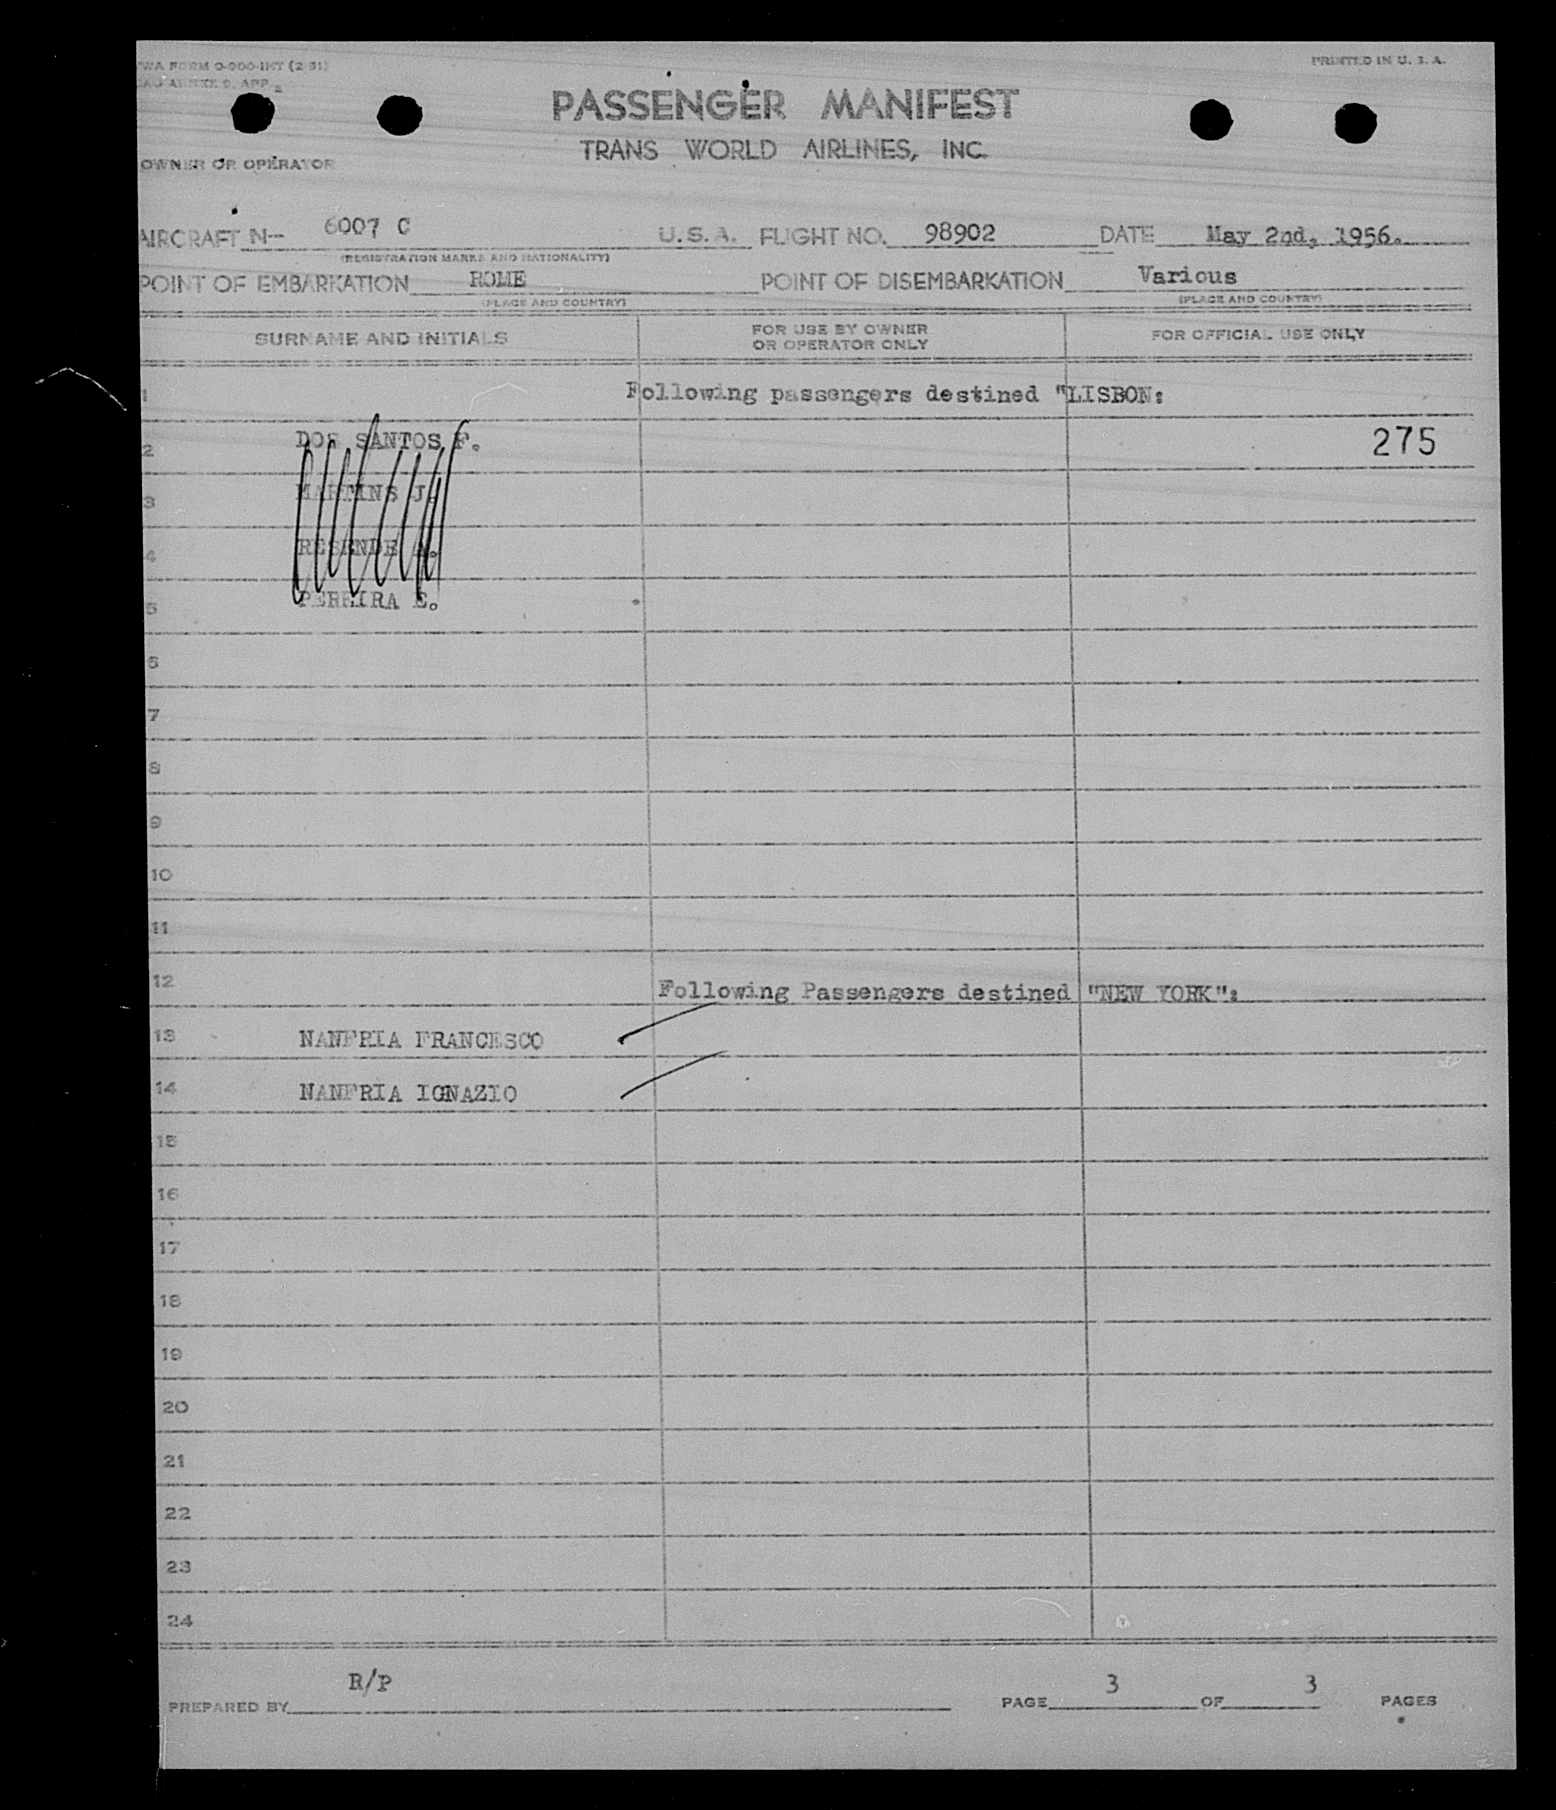 TWA FORM O-900-INT (2-51)
PRINTED IN U. S. A.
PASSENGER MANIFEST
TRANS WORLD AIRLINES, INC.
OWNER OR OPERATOR
AIRCRAFT N-- 6007 C U.S.A. FLIGHT NO. 98902 DATE May 2nd, 1956.
(REGISTRATION MARKS AND NATIONALITY)
POINT OF EMBARKATION ROME POINT OF DISEMBARKATION Various
(PLACE AND COUNTRY) (PLACE AND COUNTRY)
SURNAME AND INITIALS FOR USE BY OWNER OR OPERATOR ONLY FOR OFFICIAL USE ONLY
1 Following passengers destined "LISBON:
2 DOS SANTOS F. 275
3 MARTINS J.
4 RESENDE A.
5 PEREIRA E.
6
7
8
9
10
11
12 Following Passengers destined "NEW YORK":
13 NANFRIA FRANCESCO
14 NANFRIA IGNAZIO
15
16
17
18
19
20
21
22
23
24
PREPARED BY R/P PAGE 3 OF 3 PAGES